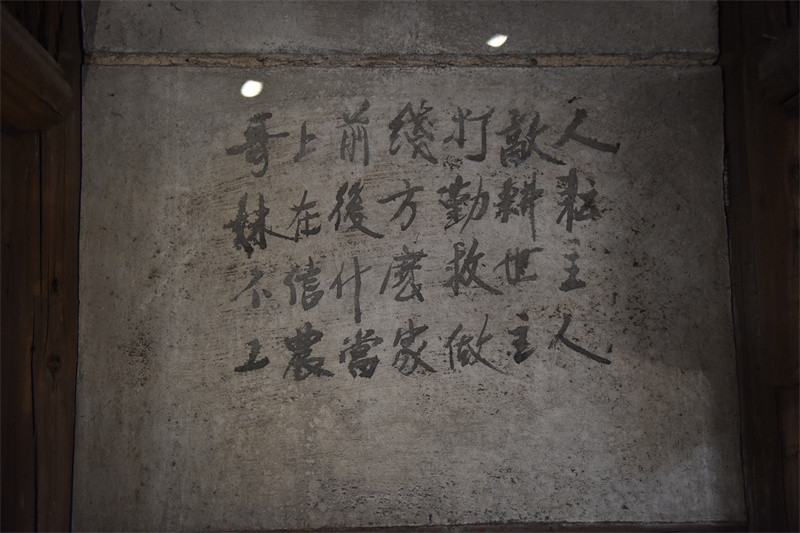 哥上前綫打敵人
妹在後方勤耕耘
不信什麽救世主
工農當家做主人